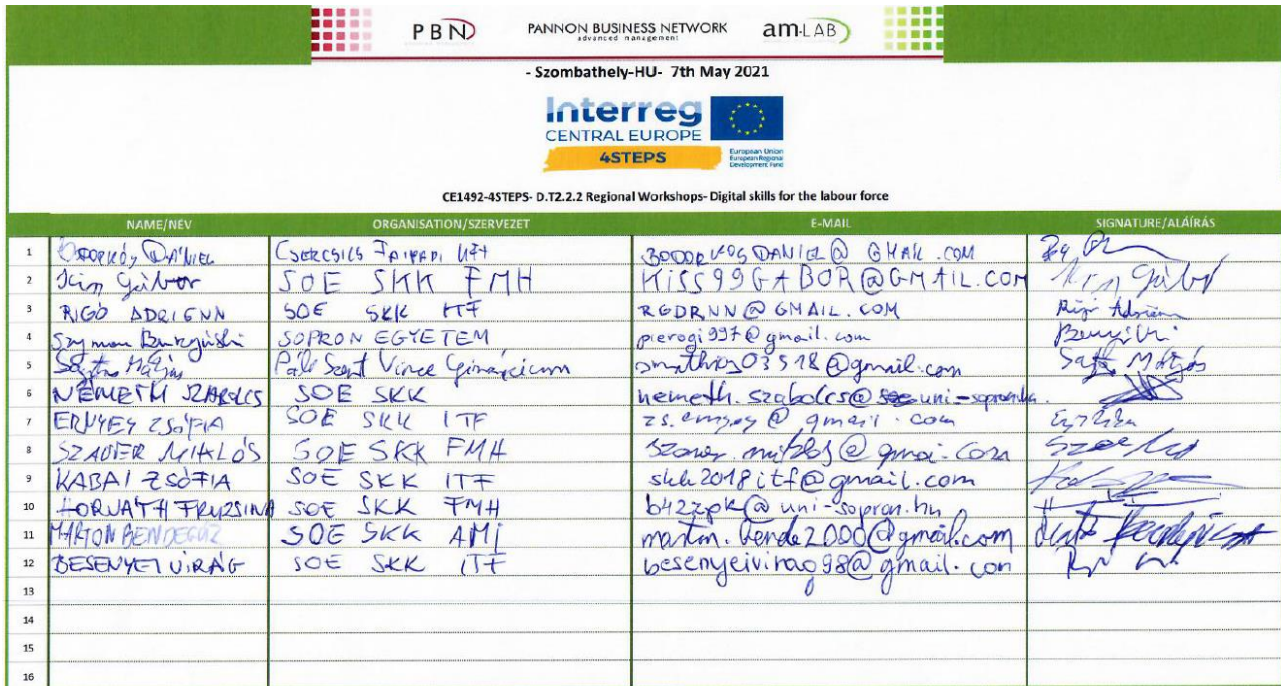 PBN PANNON BUSINESS NETWORK am-LAB
advanced management
- Szombathely-HU- 7th May 2021
Interreg
CENTRAL EUROPE
4STEPS
European Union
European Regional
Development Fund
CE1492-4STEPS- D.T2.2.2 Regional Workshops- Digital skills for the labour force
NAME/NÉV ORGANISATION/SZERVEZET E-MAIL SIGNATURE/ALÁÍRÁS
1 DÁNIEL @ GMAIL.COM
2 Kiss Gábor SOE SKK FMH KISS99GABOR@GMAIL.COM Kiss Gábor
3 RIGÓ ADRIENN SOE SKK ITF RGDRNN@GMAIL.COM Rigó Adrienn
4 Szymon SOPRON EGYETEM pierogi997@gmail.com
5 Mátyás Szent Vince @gmail.com Mátyás
6 NÉMETH SZABOLCS SOE SKK nemeth.szabolcs@
7 ERNYEY ZSÓFIA SOE SKK ITF @gmail.com
8 SZAUER MIKLÓS SOE SKK FMH
9 KABAI ZSÓFIA SOE SKK ITF skk2018itf@gmail.com
10 HORVÁTH FRUZSINA SOE SKK FMH b42zpk@uni-sopron.hu
11 MARTON BENDEGÚZ SOE SKK AMI @gmail.com
12 BESENYEI VIRÁG SOE SKK ITF besenyeivirag98@gmail.com
13
14
15
16